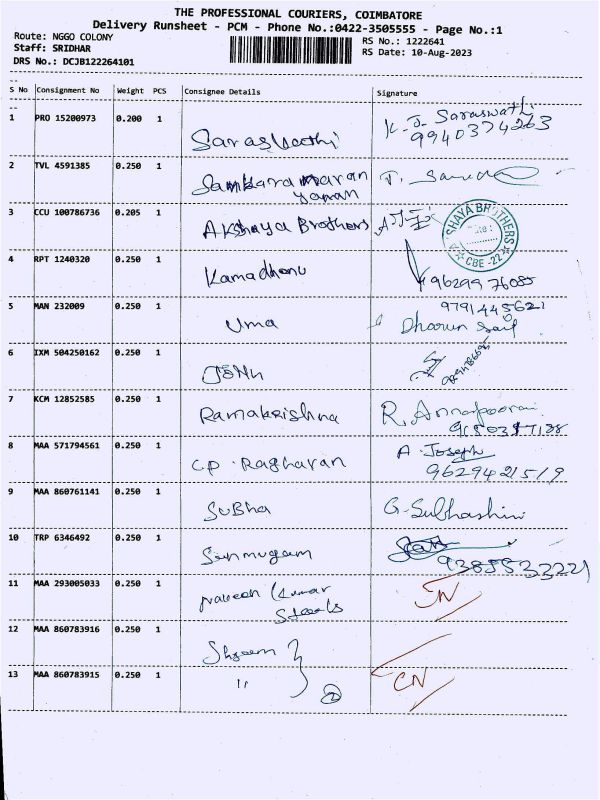 THE PROFESSIONAL COURIERS, COIMBATORE
Delivery Runsheet - PCM - Phone No.:0422-3505555 - Page No.:1
Route: NGGO COLONY RS No.: 1222641
Staff: SRIDHAR RS Date: 10-Aug-2023
DRS No.: DCJB122264101
S No Consignment No Weight PCS Consignee Details Signature
1 PRO 15200973 0.200 1 Saraswathi K. J. Saraswathi
9940374263
2 TVL 4591385 0.250 1 Samkaramaran
yaman
3 CCU 100786736 0.205 1 Akshaya Brothers
SHAYA BROTHERS
Date:
CBE-22
4 RPT 1240320 0.250 1 Kamadhenu 9629976085
5 MAN 232009 0.250 1 Uma 9791445621
Dharun
6 IXM 504250162 0.250 1 John
7 KCM 12852585 0.250 1 Ramakrishna R. Annapoorani
8 MAA 571794561 0.250 1 C.P. Raghavan A. Joseph
9629421519
9 MAA 860761141 0.250 1 Subha G. Subhashini
10 TRP 6346492 0.250 1 Sanmugam
9385533221
11 MAA 293005033 0.250 1 Praveen Kumar
Steels
12 MAA 860783916 0.250 1
13 MAA 860783915 0.250 1 " 2 CN